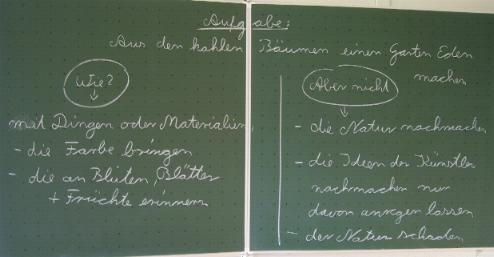 Aufgabe:
Aus den kahlen Bäumen einen Garten Eden
machen
Wie?
mit Dingen oder Materialien,
- die Farbe bringen
- die an Blüten, Blätter
+ Früchte erinnern
Aber nicht
- die Natur nachmachen
- die Ideen der Künstler
nachmachen nur
davon anregen lassen
- der Natur schaden